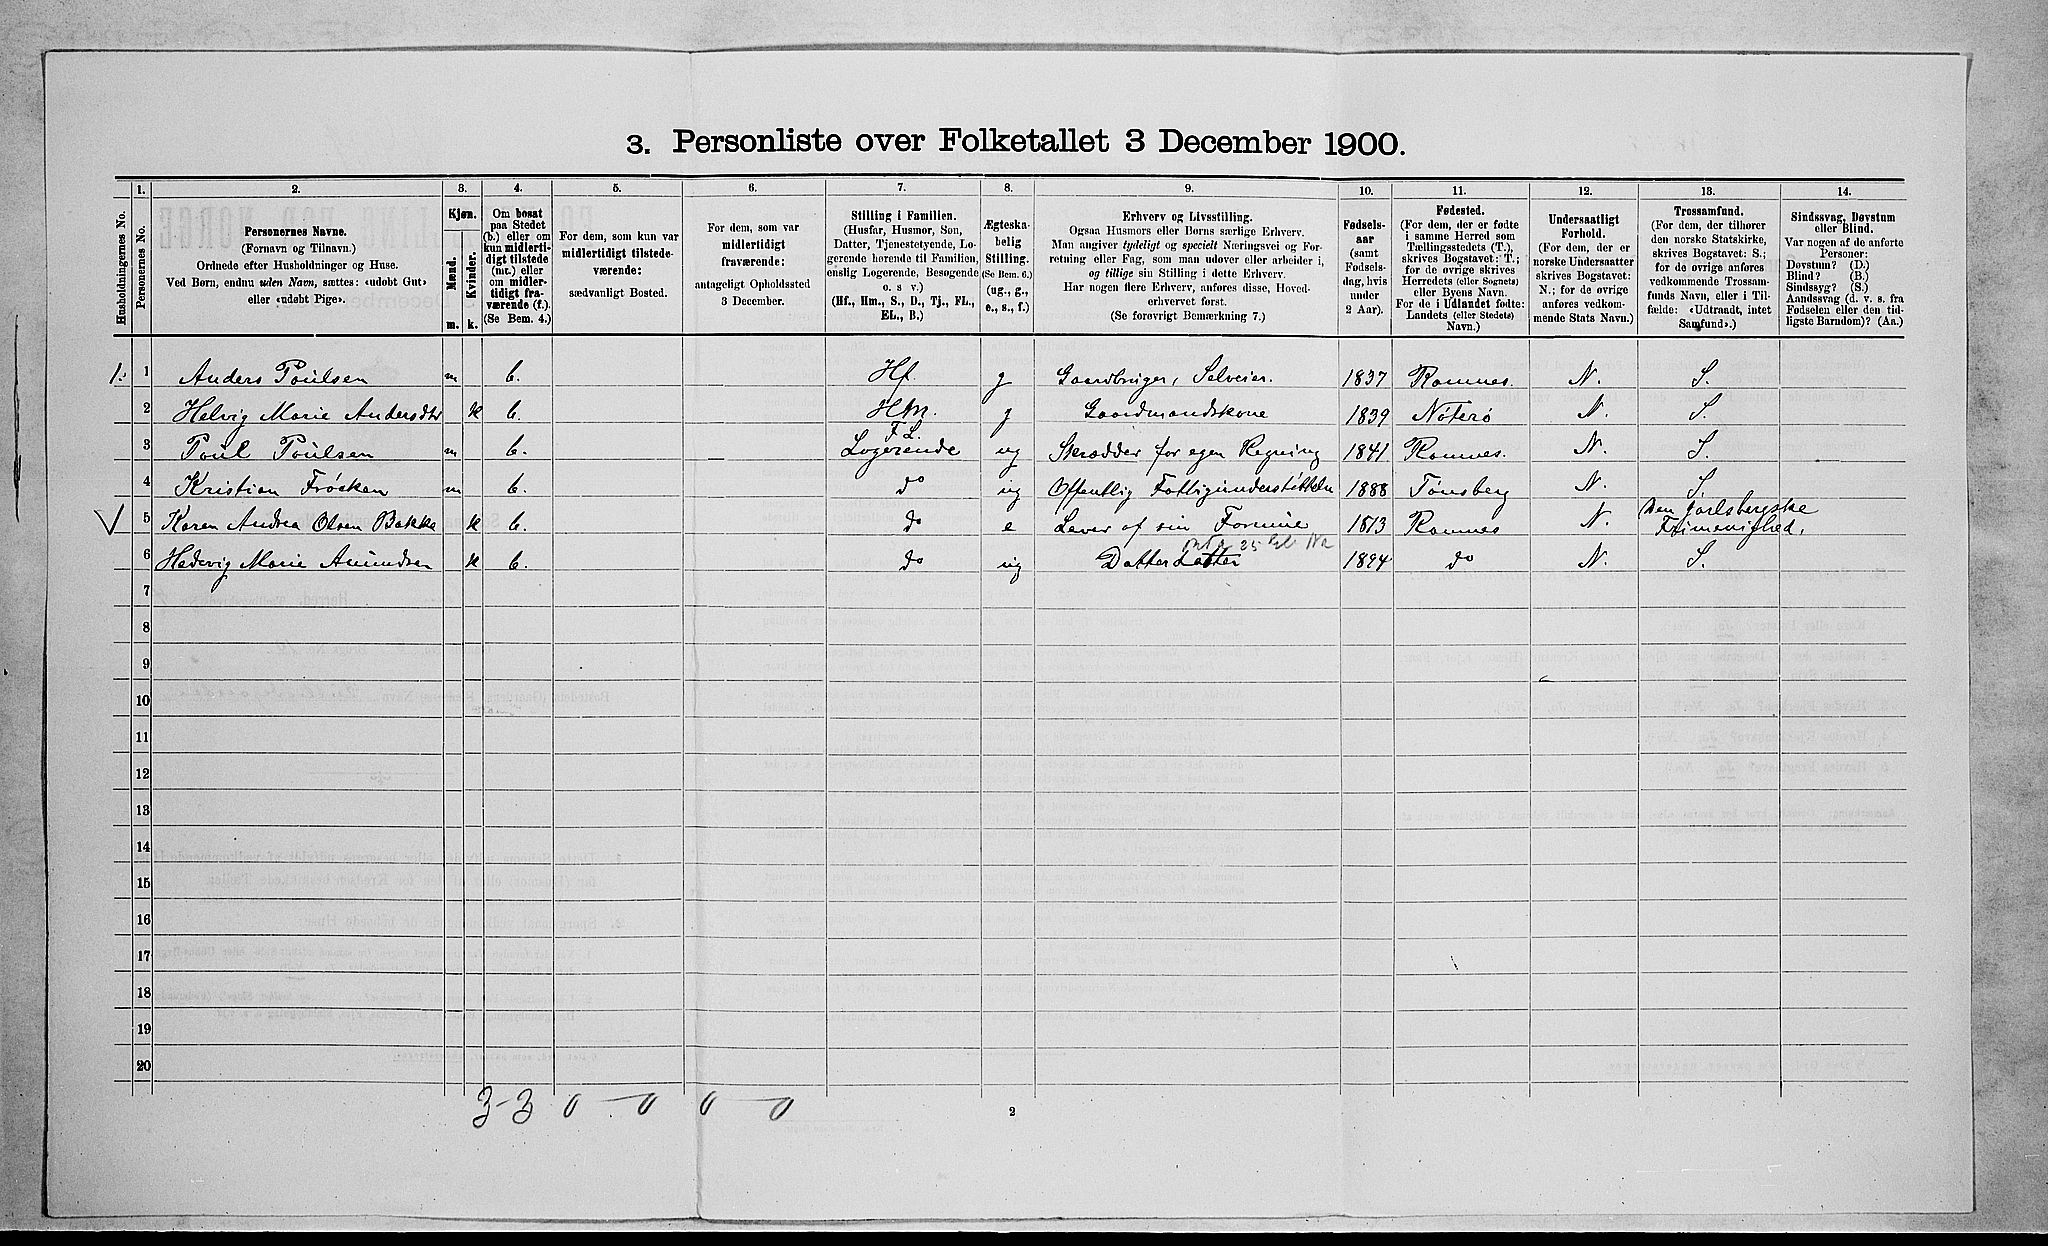 3. Personliste over Folketallet 3 December 1900.
Husholdningernes No.
1. Personernes No.
2. Personernes Navne. (Fornavn og Tilnavn.) Ordnede efter Husholdninger og Huse. Ved Børn, endnu uden Navn, sættes: «udøbt Gut» eller «udøbt Pige».
3. Kjøn. Mænd. m. Kvinder. k.
4. Om bosat paa Stedet (b.) eller om kun midlertidigt tilstede (mt.) eller om midlertidigt fraværende (f.). (Se Bem. 4.)
5. For dem, som kun var midlertidigt tilstedeværende: sædvanligt Bosted.
6. For dem, som var midlertidigt fraværende: antageligt Opholdssted 3 December.
7. Stilling i Familien. (Husfar, Husmor, Søn, Datter, Tjenestetyende, Logerende hørende til Familien, enslig Logerende, Besøgende o. s v.) (Hf., Hm., S., D., Tj., FL., EL., B.)
8. Ægteskabelig Stilling. (Se Bem. 6.) (ug., g., e., s., f.)
9. Erhverv og Livsstilling. Ogsaa Husmors eller Børns særlige Erhverv. Man angiver tydeligt og specielt Næringsvei og Forretning eller Fag, som man udøver eller arbeider i, og tillige sin Stilling i dette Erhverv. Har nogen flere Erhverv, anføres disse, Hovederhvervet først. (Se forøvrigt Bemærkning 7.)
10. Fødselsaar (samt Fødselsdag, hvis under 2 Aar).
11. Fødested. (For dem, der er fødte i samme Herred som Tællingsstedets (T.), skrives Bogstavet: T.; for de øvrige skrives Herredets (eller Sognets) eller Byens Navn. For de i Udlandet fødte: Landets (eller Stedets) Navn.)
12. Undersaatligt Forhold. (For dem, der er norske Undersaatter skrives Bogstavet: N.; for de øvrige anføres vedkommende Stats Navn.)
13. Trossamfund. (For dem, der tilhører den norske Statskirke, skrives Bogstavet: S.; for de øvrige anføres vedkommende Trossamfunds Navn, eller i Tilfælde: «Udtraadt, intet Samfund».)
14. Sindssvag, Døvstum eller Blind. Var nogen af de anførte Personer: Døvstum? (D.) Blind? (B.) Sindssyg? (S.) Aandssvag (d. v. s. fra Fødselen eller den tidligste Barndom)? (Aa.)
1. 1 Anders Poulsen m b. Hf. g Gaardbruger, Selveier. 1837 Ramnes. N. S.
2 Helvig Marie Andersdtr k b. Hm. g Gaardmandskone 1839 Nøterø N. S.
3 Poul Poulsen m b. – FL. Logerende ug Skrædder for egen Regning 1841 Ramnes. N. S.
4 Kristian Frøsken m b. do ug Offentlig Fattigunderstøttelse 1888 Tønsberg N. S
5 Karen Andrea Olsen Bakke k b. do e Lever af sin Formue 1813 Ramnes N. Den Jarlsbergske Frimenighed.
6 Hedevig Marie Amundsen k b. do ug Datter Datter 1894 do N. S.
7
8
9
10
11
12
13
14
15
16
17
18
19
20
3-3 0-0 0-0
2